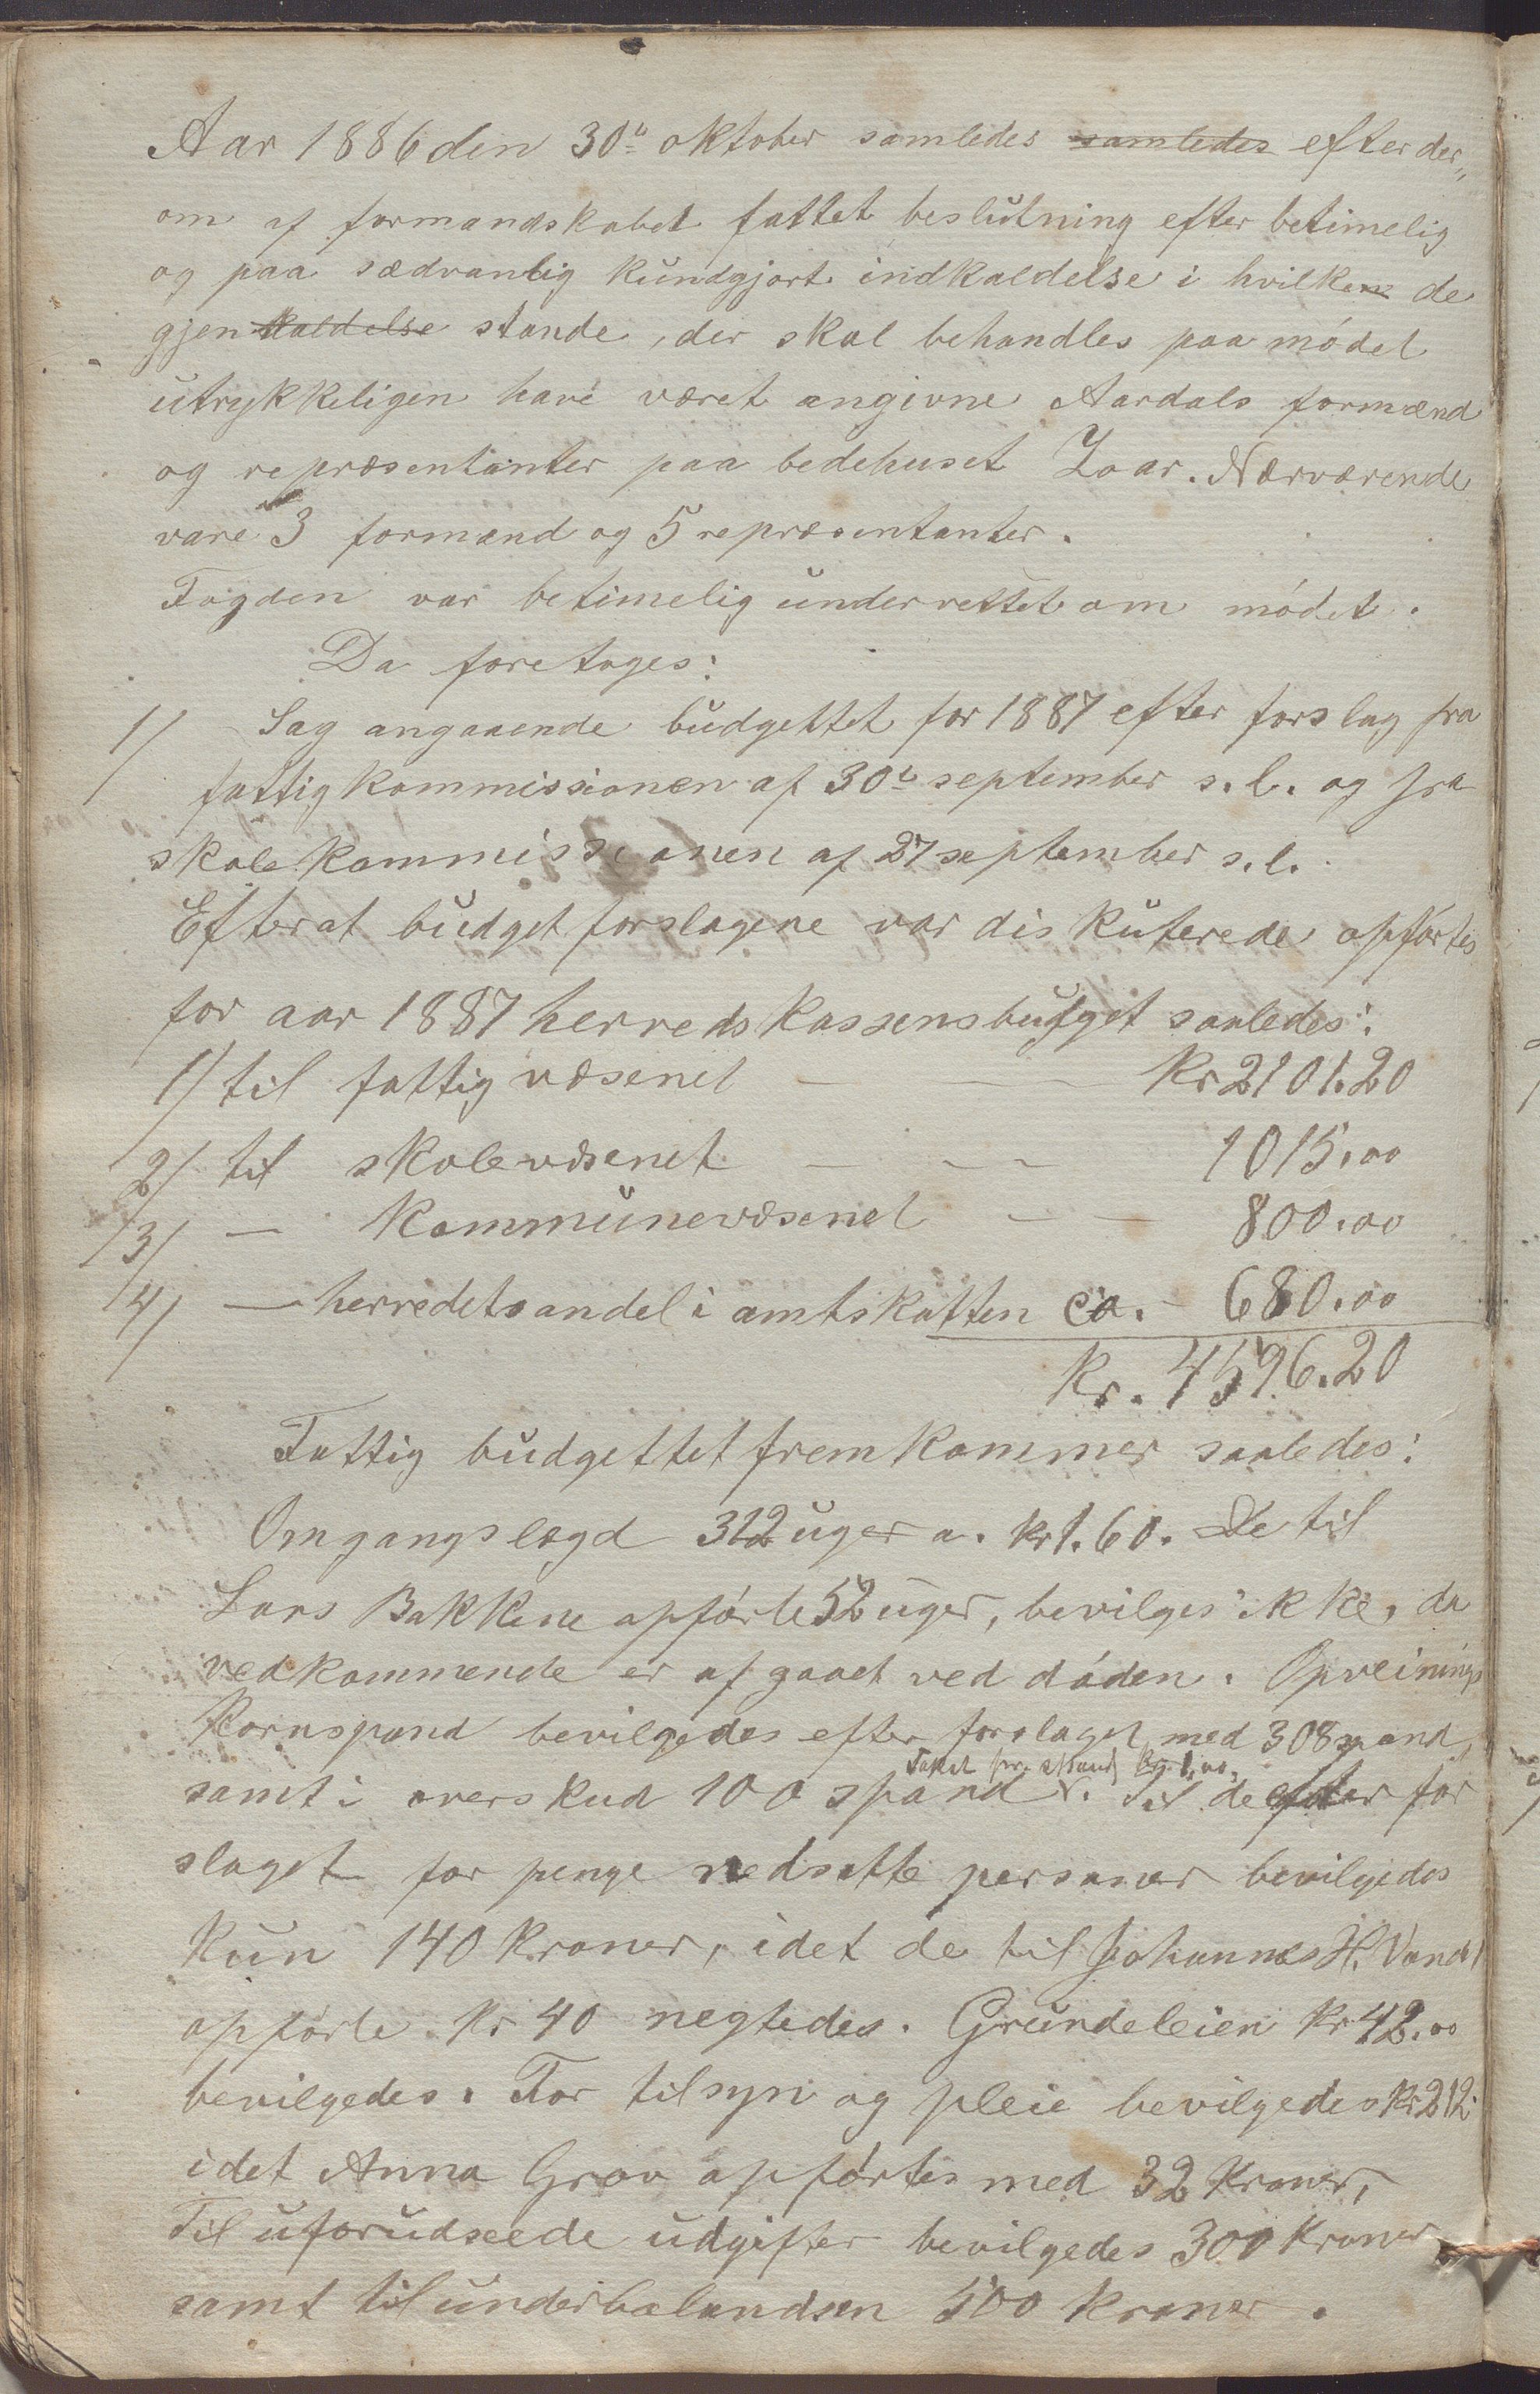 Aar 1886 den 30te oktober samledes samledes efter der„
om af formandskabet fattet beslutning efter betimelig
og paa sædvanlig kundgjort indkaldelse i hvilken de
gjenkaldelse stande, der skal behandles paa mødet
utrykkeligen have været angivne Aardals formænd
og repræsentanter paa bedehuset Zoar. Nærværende
vare 3 formænd og 5 repræsentanter.
Fogden var betimelig underrettet om mødet.
Da foretoges:
1/ Sag angaaende budgettet for 1887 efter forslag fra
fattigkommissionen af 30te september s.l. og fra
skolekommissionen af 27 september s.l.
Efterat budgetforslagene var diskuterede opførtes
for aar 1887 herredskassens budget saaledes:
1/ til fattigvæsenet — — Kr 2101.20
2/ til skolevæsenet — — — 1015.00
3/ — Kommunevæsenet — — 800.00
4/ — herredets andel i amtskatten ca. - 680.00
Kr. 4596.20
Fattigbudgettet fremkommer saaledes:
Omgangslægd 312 uger a. kr 1.60. De til
Lars Bakkene opførte 52 uger, bevilges ikke, da
vedkommende er afgaaet ved døden. Opreinings
kornspand bevilgedes efter forslaget med 308 spand,
Taket pr. spand Kr. 1,00,
samt i overskud 100 spand v. Til de efter for
slaget for penge nedsatte personer bevilgedes
kun 140 kroner, idet de til Johannes H. Vandl
opførte kr 40 negtedes. Grundeleien kr 42.00
bevilgedes. For tilsyn og pleie bevilgedes kr 212
idet Anna Grov opførtes med 32 kroner,
Til uforudseede udgifter bevilgedes 300 kroner
samt til underbalandsen 500 kroner.